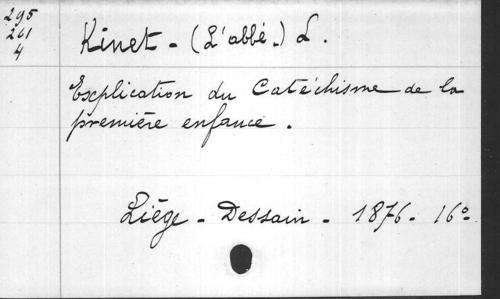 295
261
4
Kinet - (L'abbé.) L.
Explication du Catéchisme de la
première enfance.
Liège - Dessain - 1876 - 16º